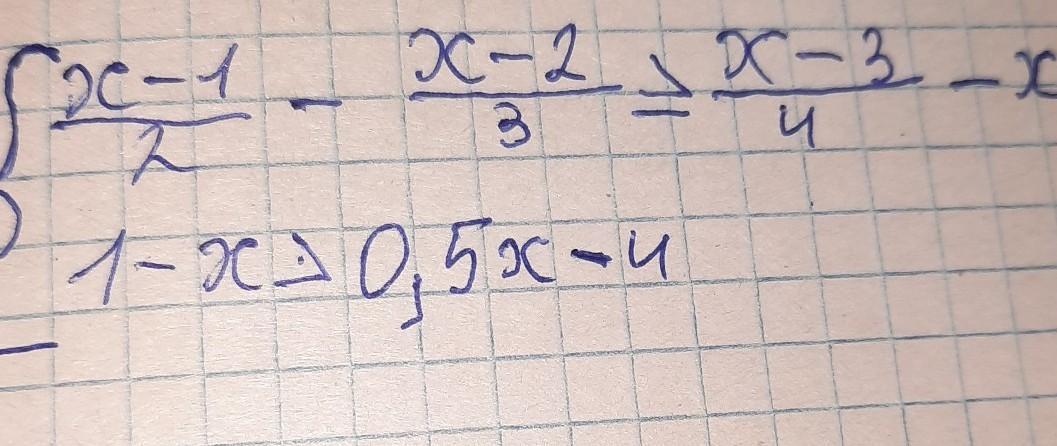 { (x-1)/2 - (x-2)/3 ≥ (x-3)/4 - x
1 - x > 0,5x - 4